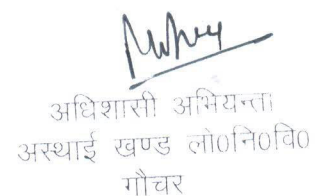 अधिशासी अभियन्ता
अस्थाई खण्ड लो0नि0वि0
गौचर